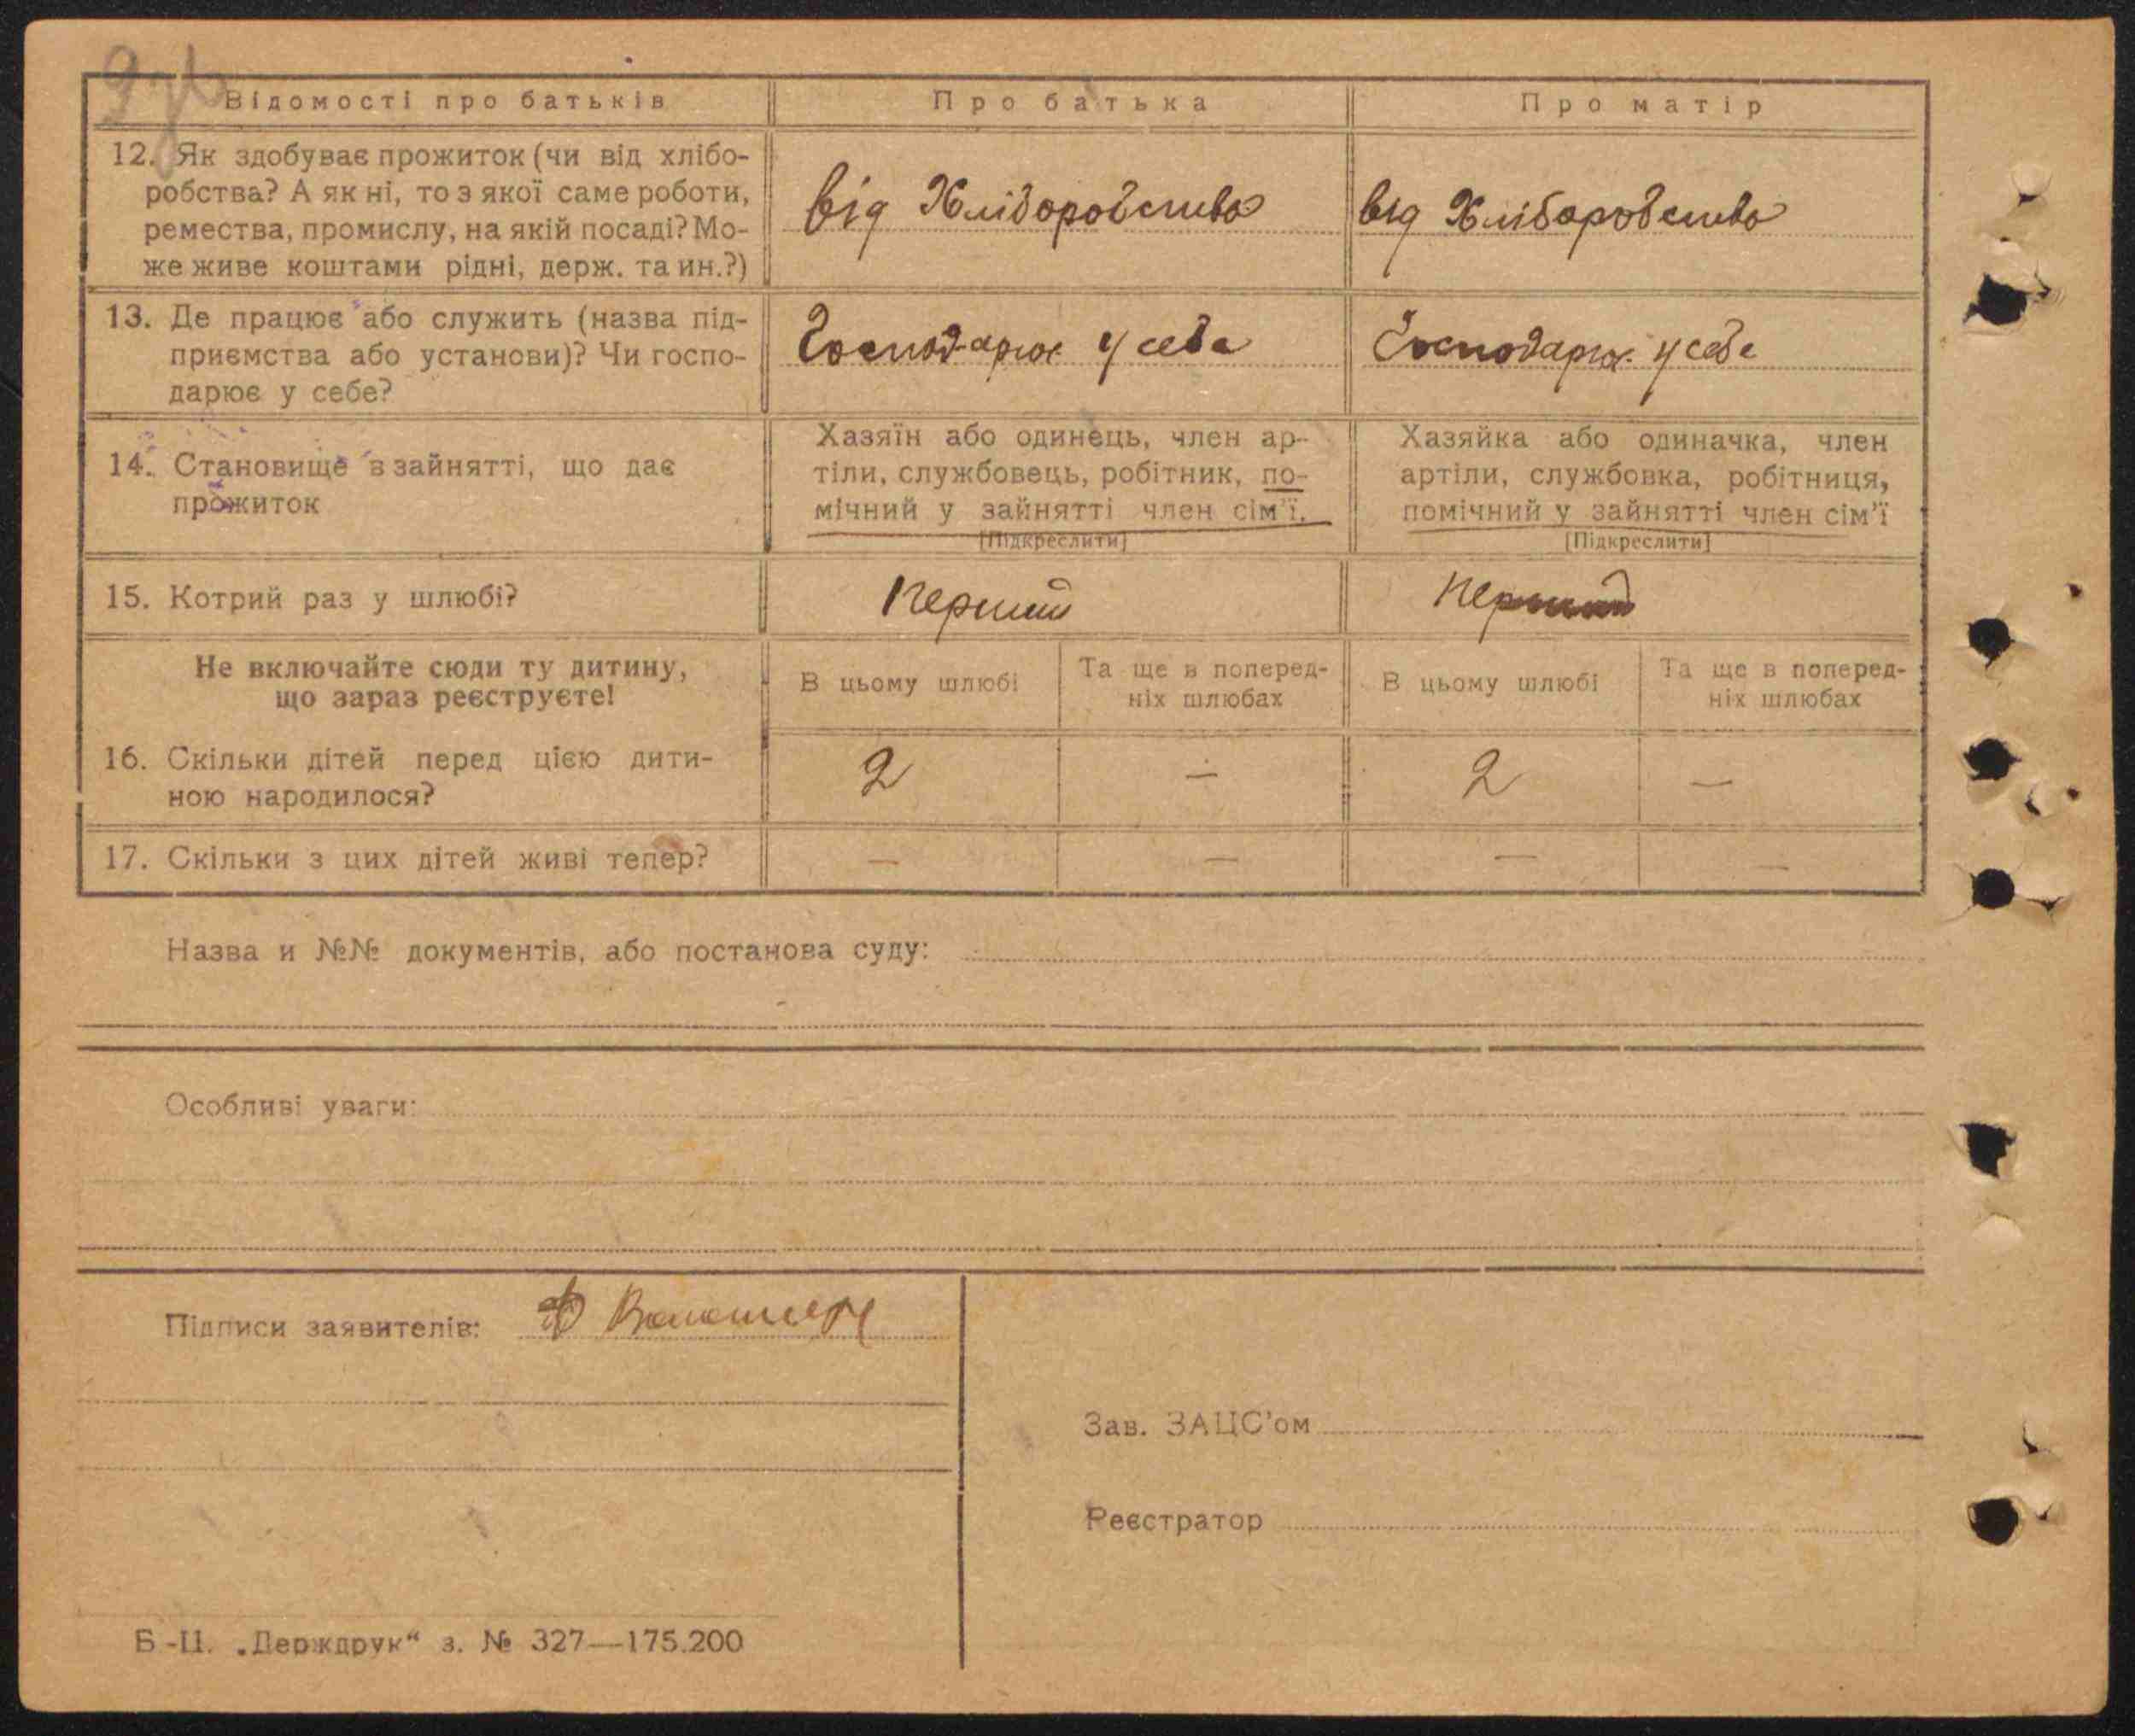 Відомості про батьків
Про батька
Про матір
12. Як здобуває прожиток (чи від хлібо-
робства? А як ні, то з якої саме роботи,
ремества, промислу, на якій посаді? Мо-
же живе коштами рідні, держ. та ин.?)
від Хліборобства
від Хліборобства
13. Де працює або служить (назва під-
приємства або установи)? Чи госпо-
дарює у себе?
Господарює у себе
Господарює у себе
14. Становище в зайнятті, що дає
прожиток
Хазяїн або одинець, член ар-
тіли, службовець, робітник, по-
мічний у зайнятті член сім'ї.
[Підкреслити]
Хазяйка або одиначка, член
артіли, службовка, робітниця,
помічний у зайнятті член сім'ї
[Підкреслити]
15. Котрий раз у шлюбі?
Перший
Перший
Не включайте сюди ту дитину,
що зараз реєструєте!
В цьому шлюбі
Та ще в поперед-
ніх шлюбах
В цьому шлюбі
Та ще в поперед-
ніх шлюбах
16. Скільки дітей перед цією дити-
ною народилося?
2
—
2
—
17. Скільки з цих дітей живі тепер?
—
—
—
—
Назва и №№ документів, або постанова суду:
Особливі уваги:
Підписи заявителів:
Зав. ЗАЦС'ом
Реєстратор
Б-Ц. „Держдрук“ з. № 327—175.200